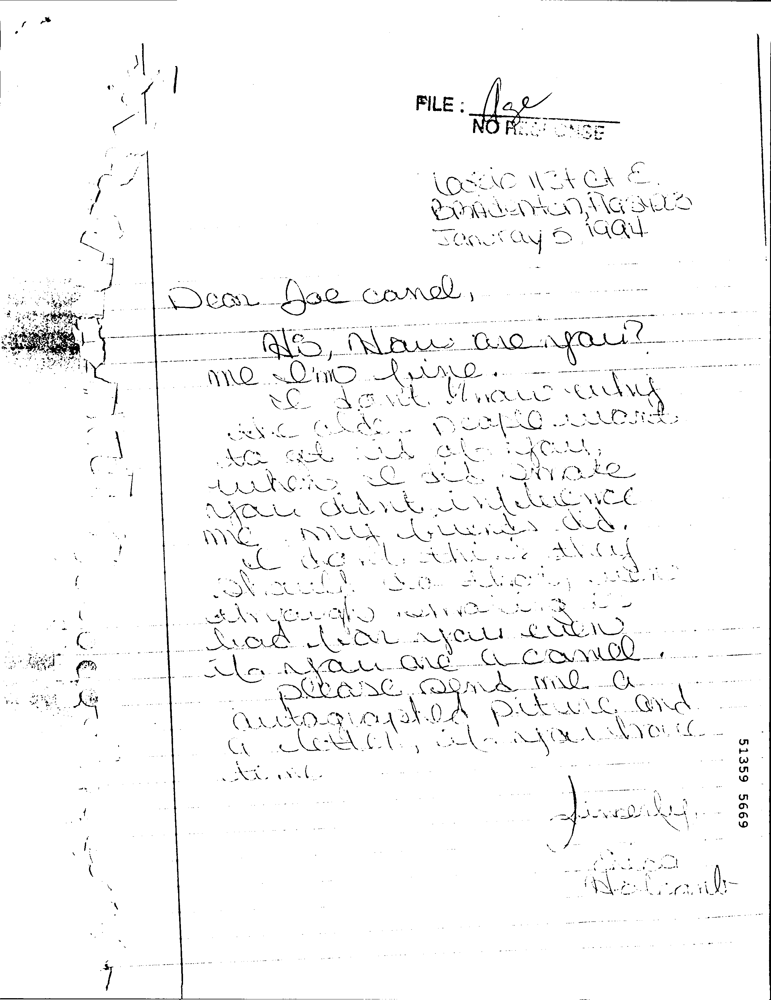 FILE: Age
NO RESPONSE
113t Ct E.
January 5, 1994
Dear Joe camel,
Hi, How are you?
me I'm fine.
I don't know why
the older people want
to get rid of you,
when I did smoke
you didnt influence
me my friends did.
I don't think they
should do that, even
through smoking is
bad for you even
if you are a camel.
please send me a
autographed piture and
a letter, if you have
time.
Sincerly,
51359 5669